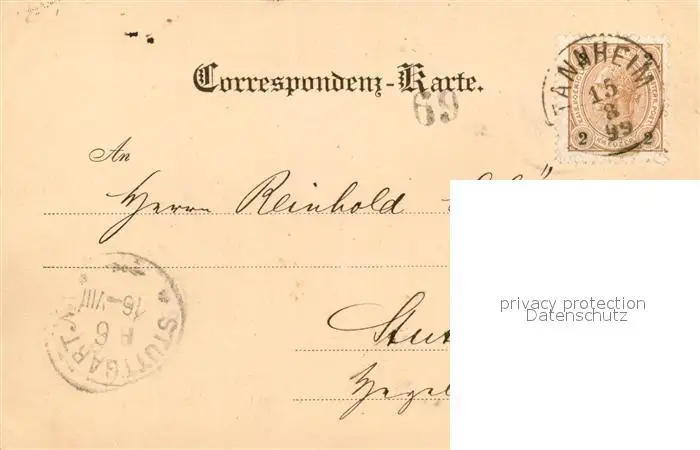 Correspondenz-Karte.
TANNHEIM
15
8
99
2 2
69
An
Herrn Reinhold
privacy protection
Datenschutz
STUTTGART
16-VIII
6
Stut
Hegel